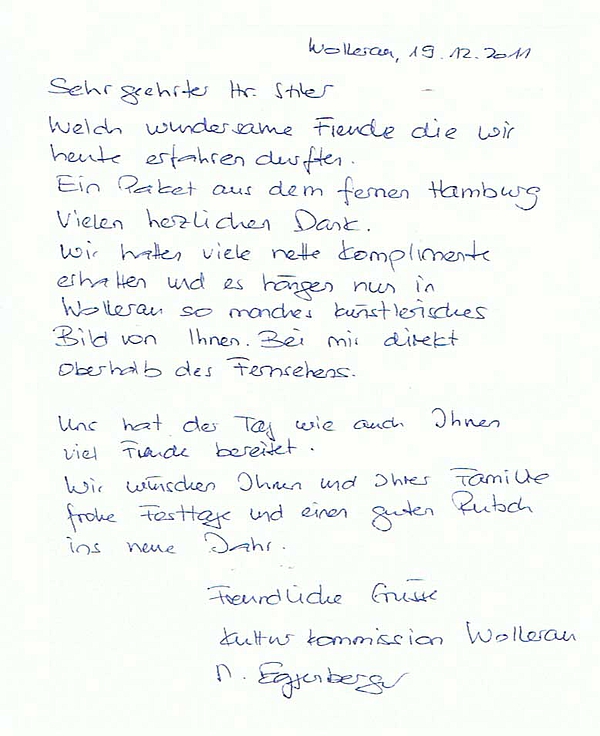 Wollerau, 19.12.2011
Sehr geehrter Hr. Stiler
Welch wundersame Freude die wir
heute erfahren durften.
Ein Paket aus dem fernen Hamburg
Vielen herzlichen Dank.
Wir hatten viele nette Komplimente
erhalten und es hängen nun in
Wollerau so manches künstlerisches
Bild von Ihnen. Bei mir direkt
oberhalb des Fernsehens.
Uns hat der Tag wie auch Ihnen
viel Freude bereitet.
Wir wünschen Ihnen und Ihrer Familie
frohe Festtage und einen guten Rutsch
ins neue Jahr.
Freundliche Grüsse
Kulturkommission Wollerau
Eggenberger